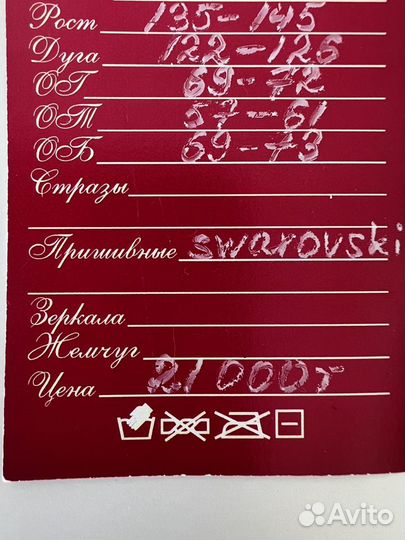 Рост 135-145
Дуга 122-126
ОГ 69-72
ОТ 57-61
ОБ 69-73
Стразы
Пришивные swarovski
Зеркала
Жемчуг
Цена 21000т
Avito